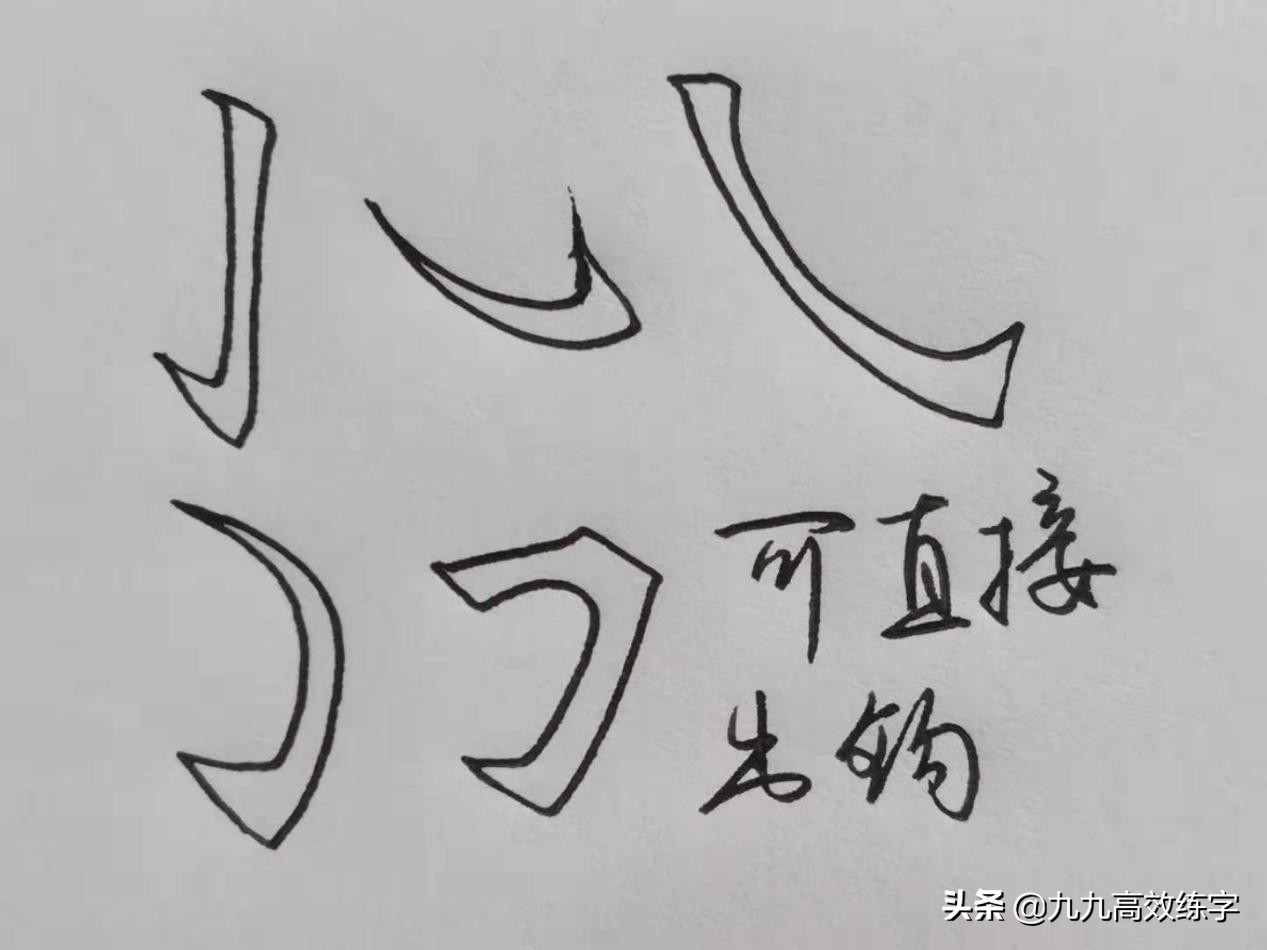 可直接
出钩
头条 @九九高效练字